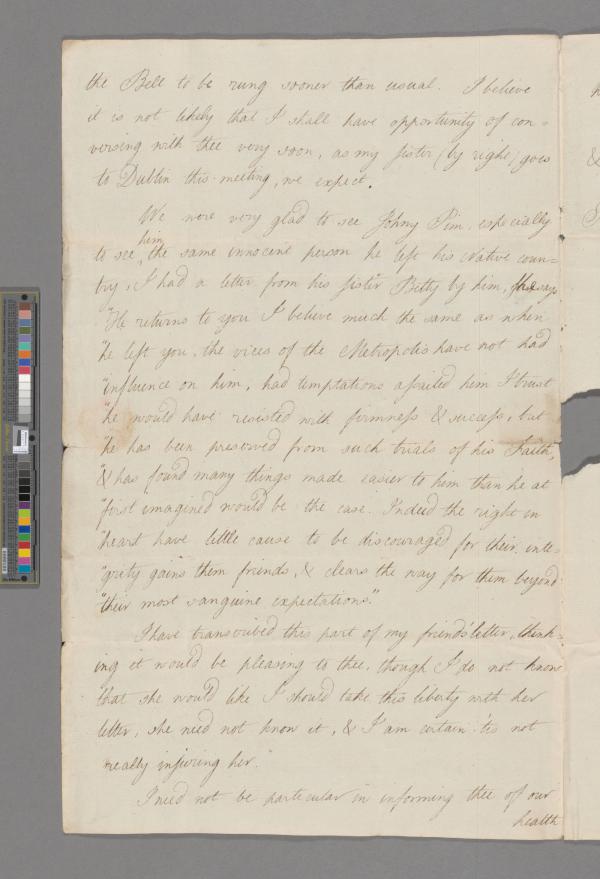 the Bell to be rung sooner than usual. I believe
it is not likely that I shall have opportunity of con=
versing with thee very soon, as my sister (by right) goes
to Dublin this meeting, we expect.
We were very glad to see Johny Pim, especially
to see him the same innocent person he left his Native coun=
try, I had a letter from his sister Betty by him, she says
"He returns to you I believe much the same as when
"he left you, the vices of the Metropolis have not had
"influence on him, had temptations assailed him I trust
"he would have resisted with firmness & success, but
"he has been preserved from such trials of his Faith,
"& has found many things made easier to him than he at
"first imagined would be the case. Indeed the right in
"heart have little cause to be discouraged for their inte=
"grity gains them friends, & clears the way for them beyond
"their most sanguine expectations."
I have transcribed this part of my friend's letter, think=
ing it would be pleasing to thee, though I do not know
that she would like I should take this liberty with her
letter, she need not know it, & I am certain 'tis not
really injuring her.
I need not be particular in informing thee of our
health
&